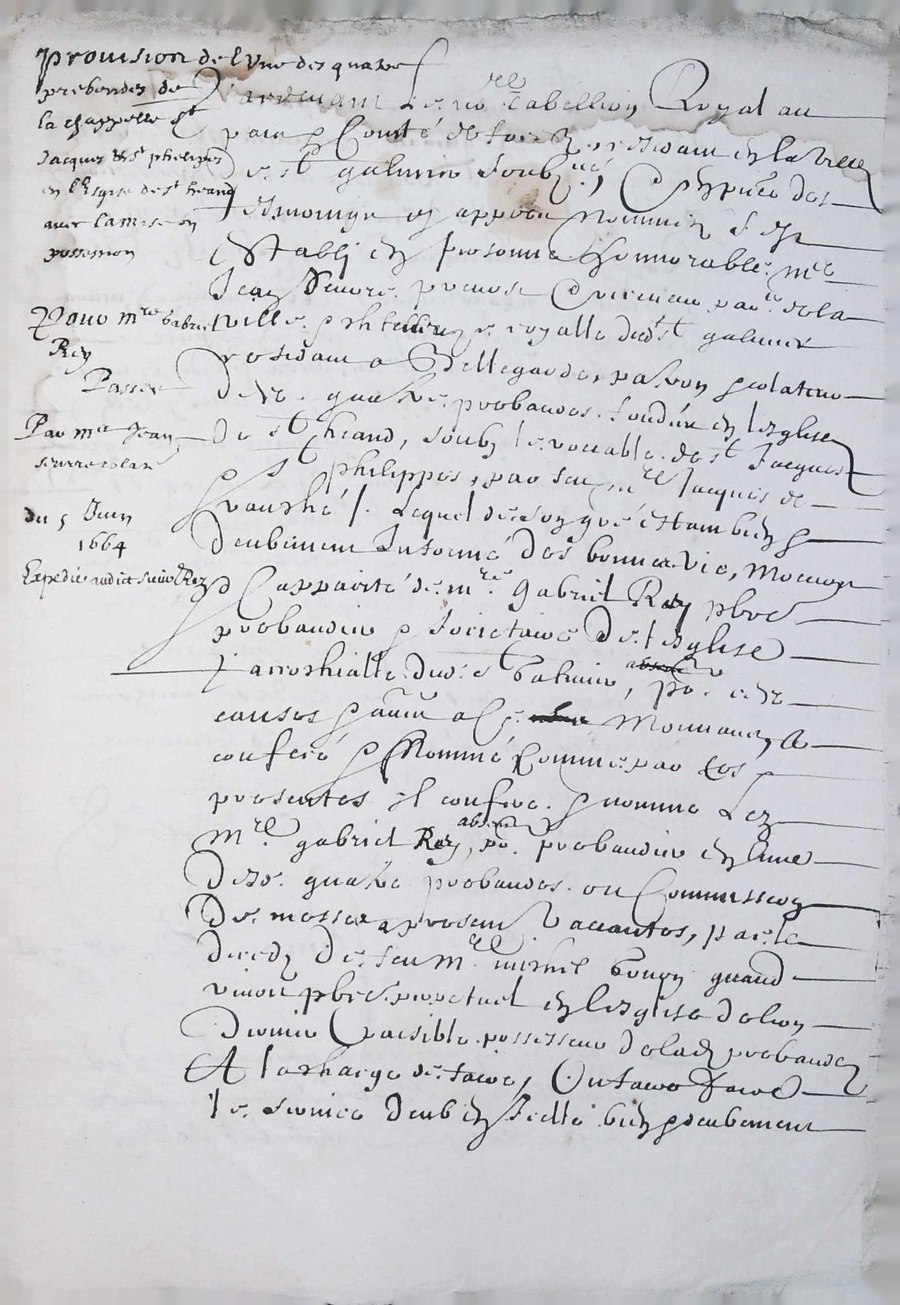 provision de l'une des quatre
prebendes de
la chappelle st
Jacques & st phelippes
en l'Esglise de st heand
avec la mise en
possession
Pour mre Gabriel
Rey
Passée
Par mre Jean
du 5 Juin
1664
Expedié audict sieur Rey
Pardevant le no.re tabellion Royal au
pais & Comté de forez, residant en la ville
de st galmier soubz.né, & en p.nce des
tesmoings en appres nommez s'est
establi en personne honnorable mre
Jean
ville & chastellenie royalle dud st galmier
residant a Bellegarde, patron & colateur
desd. quatre prebandes fondées en l'esglise
de st heand, soubz le vocable de st Jacques
& st philippes, par feu mre Jacques de
/. Lequel de son gré estant bien &
deubement Informé des bonnes vie, moeurs
& cappacité de mre gabriel Rey pbre
prebandier & societaire de l'esglise
parrochialle dud. st Galmier, absent pr. cedz
causes & autres a ce mouvant, a
conferé & Nommé comme par ces
presentes il confere & nomme led
mre gabriel Rey, absent, pr. prebandier en l'une
desd. quatre prebandes ou Commission
de messes a present vaccantes, par le
deceds de feu mre michel quand
vivoit pbre perpetuel en l'esglise de lion
dernier & paisible possesseur de lad prebande
A la charge de faire, ou faire faire
le service deub en icelle bien & deubement